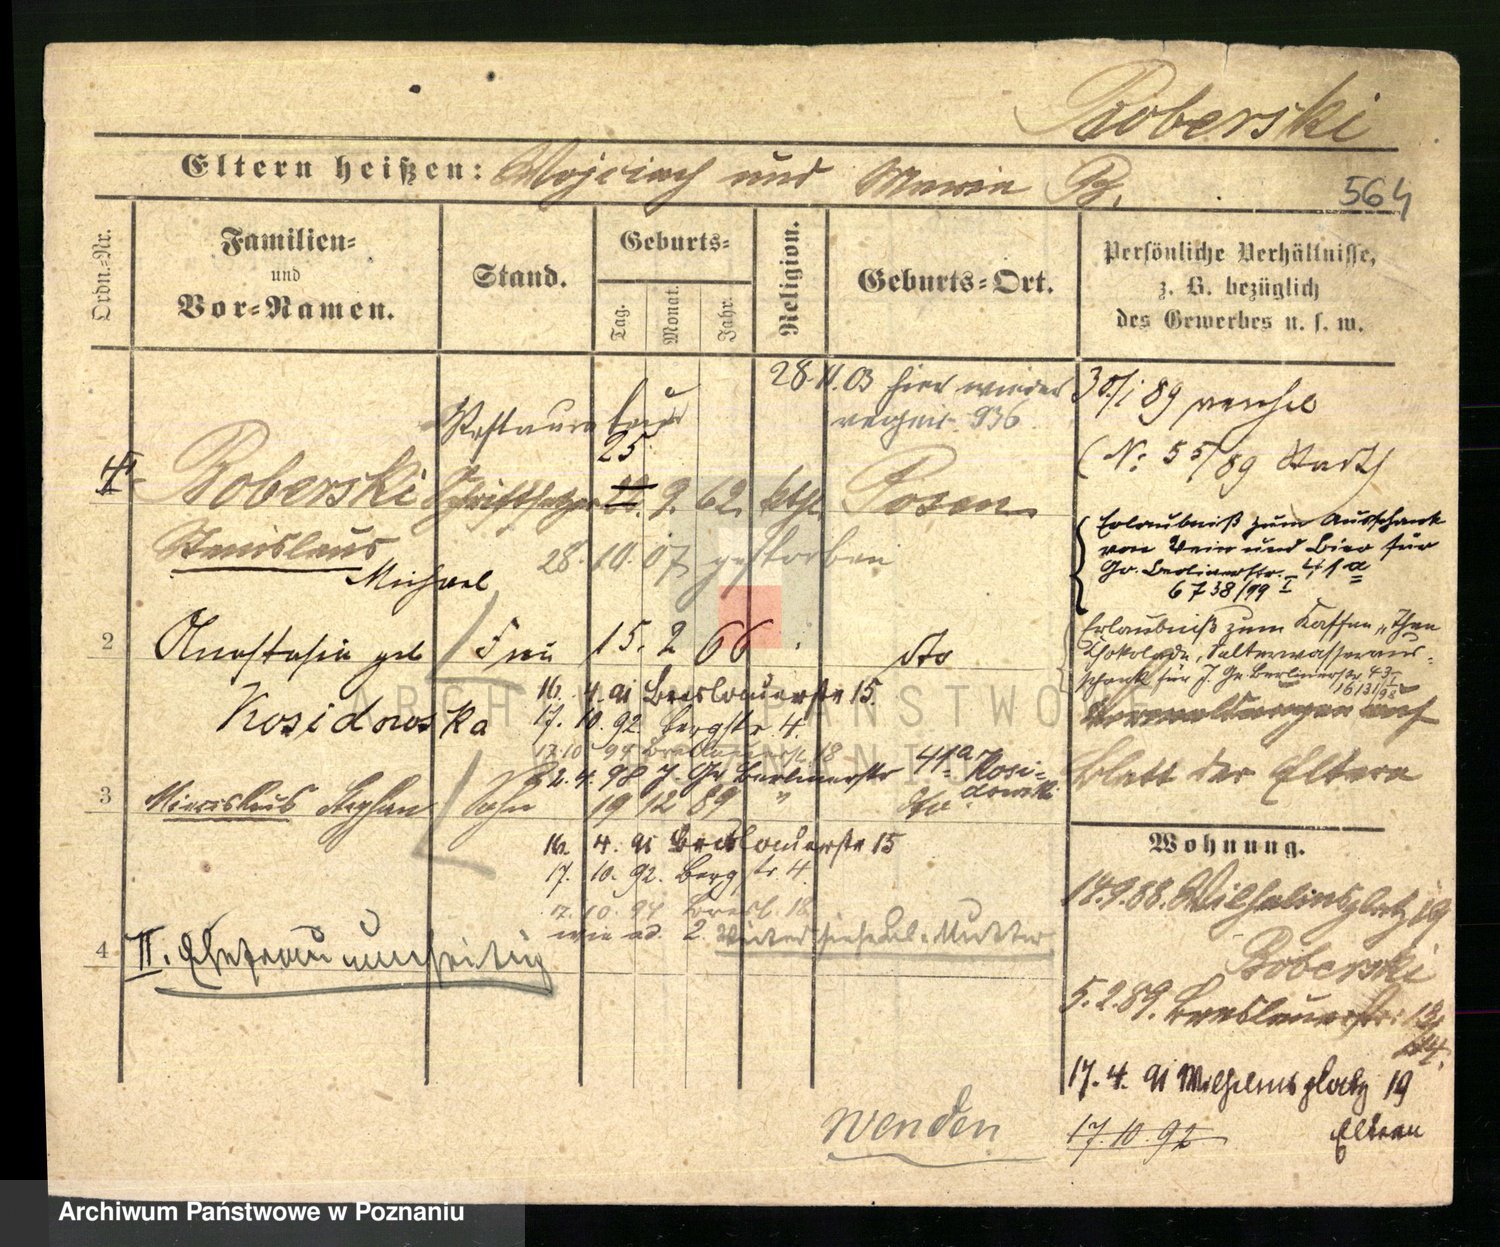 Boberski
Eltern heißen: Wojciech und Maria B.
564
Ordn.-Nr.
Familien-
und
Vor-Namen.
Stand.
Geburts-
Tag.
Monat.
Jahr.
Religion.
Geburts-Ort.
Persönliche Verhältnisse,
z. B. bezüglich
des Gewerbes u. s. w.
28.11.03 hier wieder
936
Restaurateur
30/1 89
(No 55/89 Stadt)
25
Boberski Schriftsetzer 9. 62. kth. Posen
Stanislaus
Michael
28.10.07 gestorben
Erlaubniß zum Ausschank
von Wein und Bier für
Gr. Berlinerstr. 41a
6738/99 I
2 Anastasia geb Frau 15. 2 66 dto
Kosidowska
Erlaubniß zum Kaffee, Thee
Chokolade, Selterwasseraus-
schank für J. Gr. Berlinerstr. 43
16. 4. 91 Breslauerstr 15.
17. 10. 92 Bergstr. 4.
17.10 94 18
2. 4. 98 J. Gr Berlinerstr 41a Kosi-
dowski
Blatt der Eltern
3 Stephan Sohn 19 12 89 " dto.
16. 4. 91 Breslauerstr 15
17. 10. 92. Bergstr 4.
17.10. 94 Bresl. 18
wie ad. 2. Mutter
Wohnung.
18.9.88. Wilhelmsplatz 19
Boberski
5.2.89. Breslauerstr. 13/
14.
17. 4. 91 Wilhelmsplatz 19
Eltern
17. 10. 92
4 II. Ehefrau umseitig
wenden
ARCHIWUM PAŃSTWOWE
W POZNANIU
Archiwum Państwowe w Poznaniu